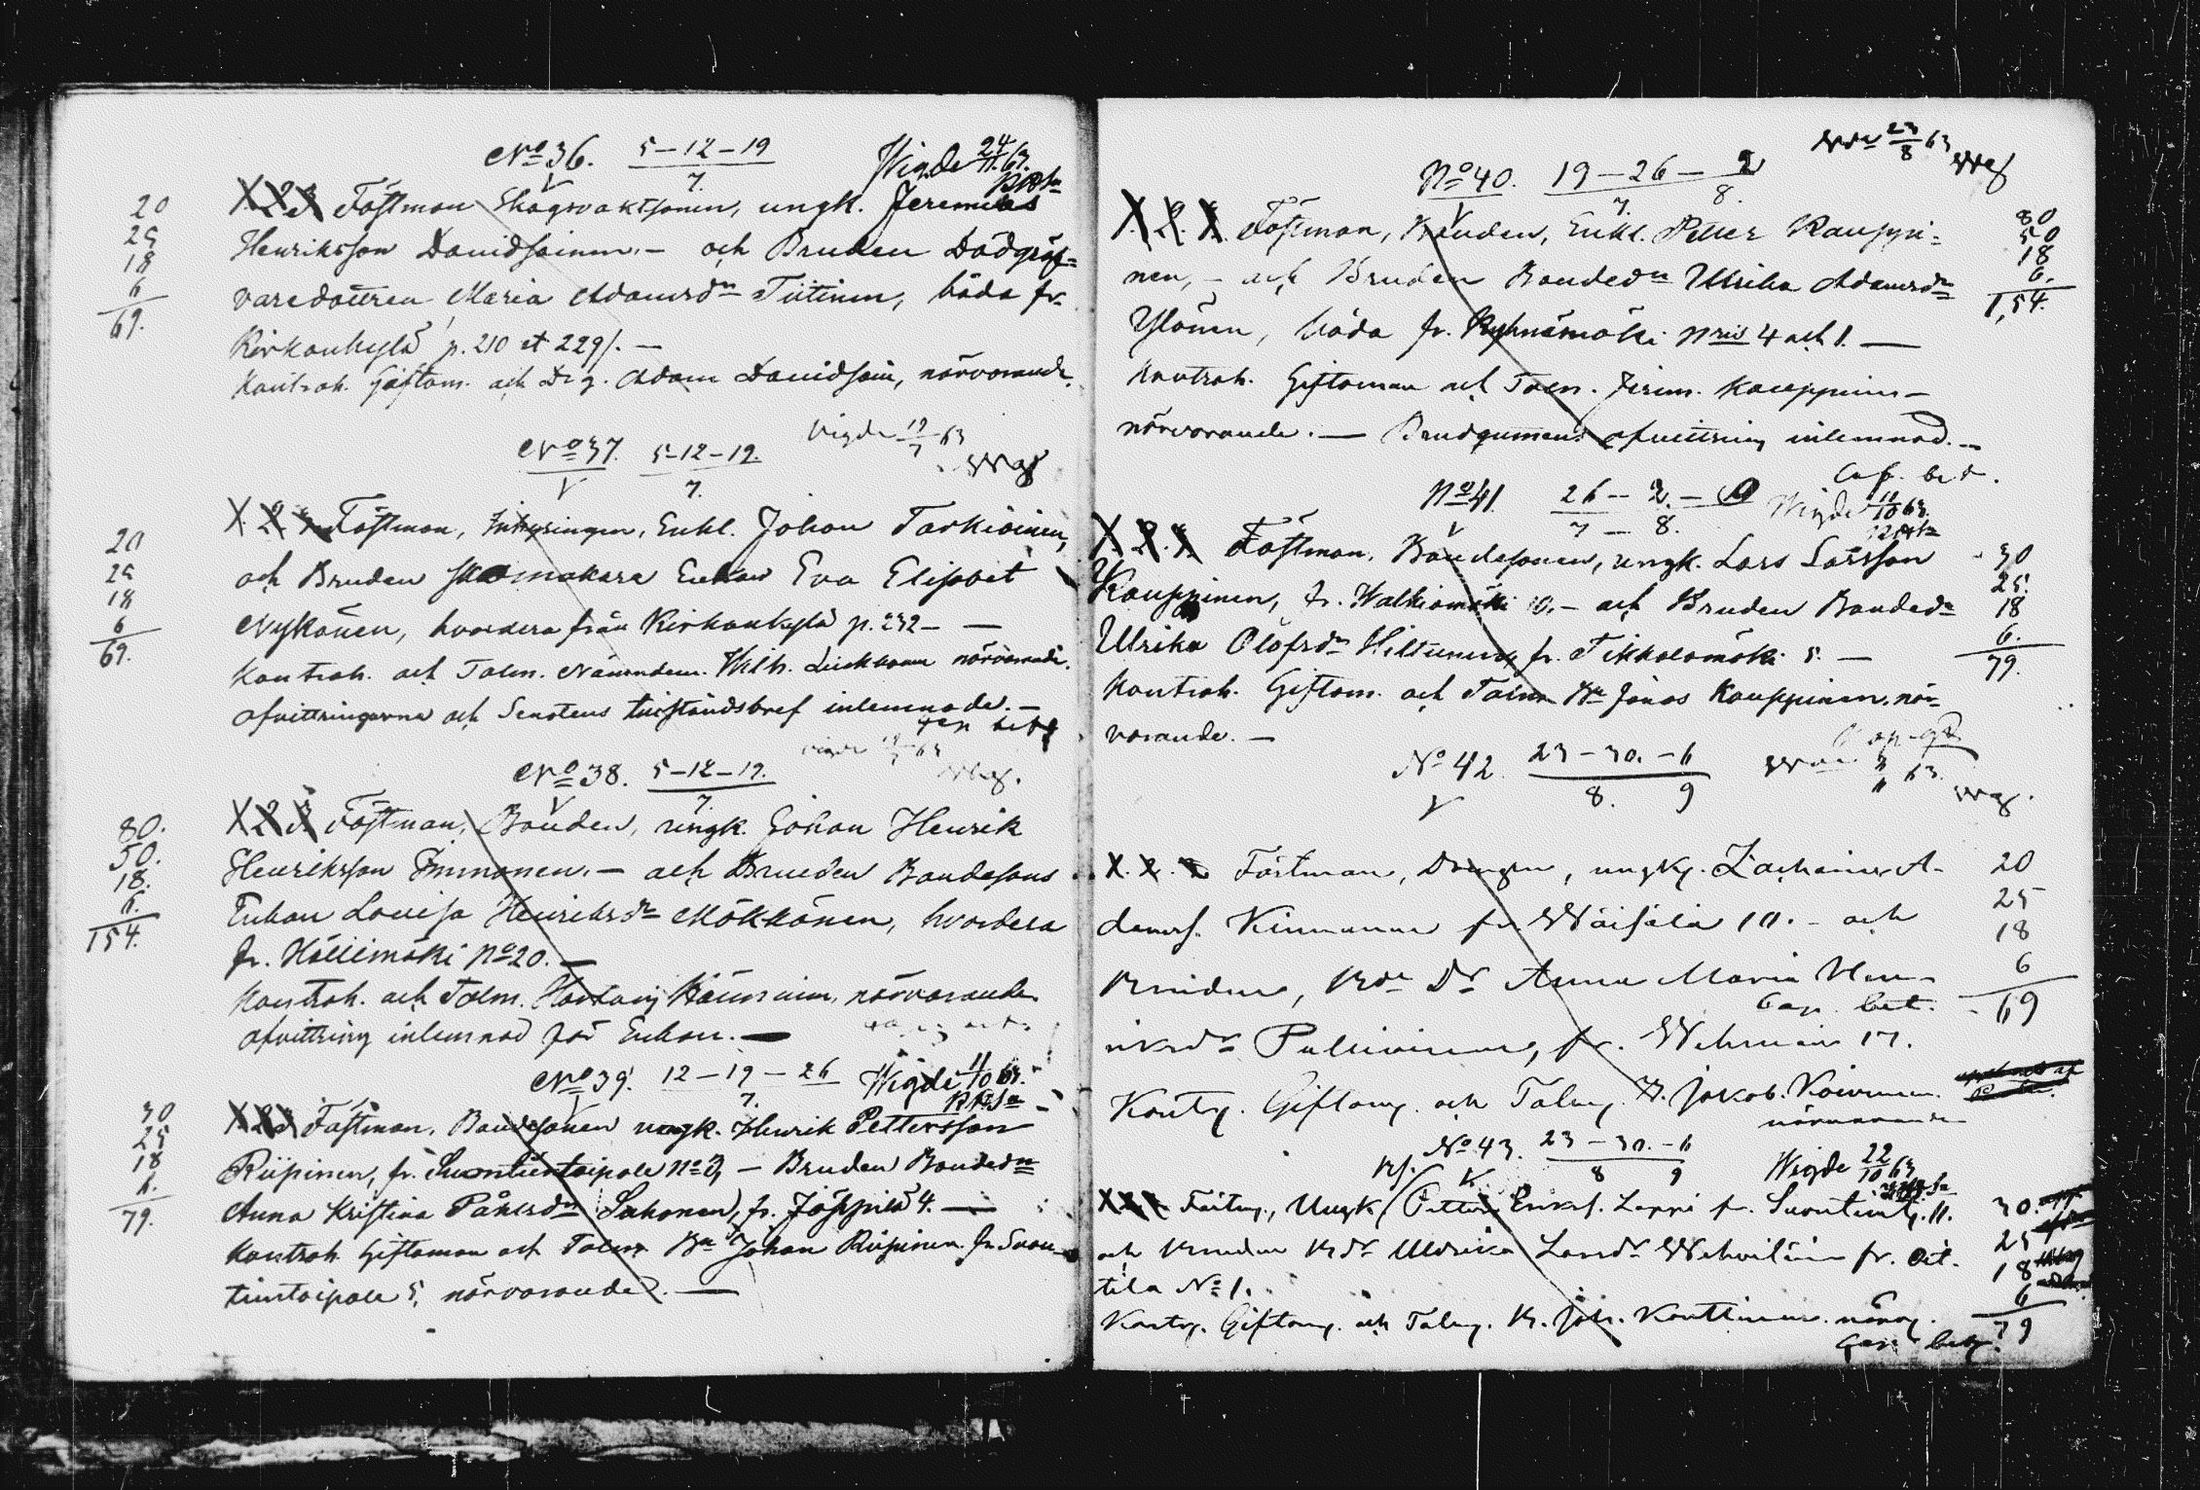 No 36. 5–12–19
7.
Wigde 24/11 63.
20
25
18
6
69.
X. 2. 3. Fästman Skogvaktsonen, ungk. Jeremias
Henriksson Davidsainen. – och Bruden Dödgräf=
varedottren Maria Adamsdr Tiitinen, båda fr.
Kirkonkylä p. 210 et 229/. —
Kontrah. Giftom. och Adam Davidsain, närvarande.
No 37. 5–12–19.
7.
Vigde 19/7 63
20
25
18
6
69.
X. 2. Fästman, Inhysingen, Enkl. Johan Tarkiainen,
och Bruden Skomakare Enkan Eva Elisabet
Nykänen, hvardera från Kirkonkylä p. 232 – —
Kontrah. och Talm. Nämndem. Wilh. närvarande.
Afvittringarna och Senatens tillståndsbref inlemnade. –
No 38. 5–12–19.
7.
80.
50.
18.
6.
154.
X. 2. 3. Fästman, Bonden, ungk. Johan Henrik
Henriksson Immonen. – och Bruden Bondesons
Enkan Lovisa Henriksdr Mökkönen, hvardera
fr. Hällimäki No 20. —
Kontrah. och Talm. närvarande
afvittring inlemnad för Enkan. —
No 39. 12–19–26
7.
Wigde 11/10 63.
30
25
18
6.
79.
X. 2. 3. Fästman, Bondesonen ungk. Henrik Pettersson
Riipinen, fr. Suontientaipale No 3, – Bruden Bondedr
Anna Kristina Påhlsdr Suhonen, fr. Jäppilä 4. —
Kontrah. Giftoman och Talm Bn Johan Riipinen fr. Suon
tientaipale 5, närvarande. —
No 40. 19–26–2
7. 8.
23/8 63
80
50
18
6.
1,54.
X. 2. 3. Fästman, Bonden, Enkl. Petter Kauppi=
nen, – och Bruden Bondedr Ulrika Adamsdr
Ylönen, båda fr. Ryhnämäki Nris 4 och 1. —
Kontrah. Giftoman och Talm. Jerem. Kauppinen –
närvarande. — Brudgummens afvittring inlemnad. –
No 41 26–2.–9
7 – 8.
Cop. bet.
Wigde 11/10 63.
30
25.
18
6.
79.
X. 2. 3. Fästman, Bondesonen, ungk. Lars Larsson
Kauppinen, fr. Walkiamäki 10. – och Bruden Bondedr
Ulrika Olofsdr Hiltunen fr. Tikkalamäki 5. —
Kontrah. Giftom. och Talm Bn Jonas Kauppinen, när=
varande. –
No 42. 23–30.–6
8. 9
20
25
18
6
69
X. 2. 3. Fästman, Drengen, ungk. Zacharias A-
damss. Kinnunen fr. Wäisälä 10. – och
Bruden, Bdr Dr Anna Maria Hen-
Cop. bet.
riksdr Pulliainen, fr. Wehmais 17.
Kontr. Giftom. och Talm. B. Jakob Koivunen
närvarande
No 43. 23–30.–6
8 9
Wigde 22/10 63
30.
25
18
6
79
Fästm., Ungk Petter Erikss. Leppä fr. Suontient. 11.
och Bruden Bdr Ulrika Larsdr Wehviläin fr. Oit.
tila No 1.
Kontr. Giftom. och Talm. B. Joh. Konttinen närv.
Cop. bet.